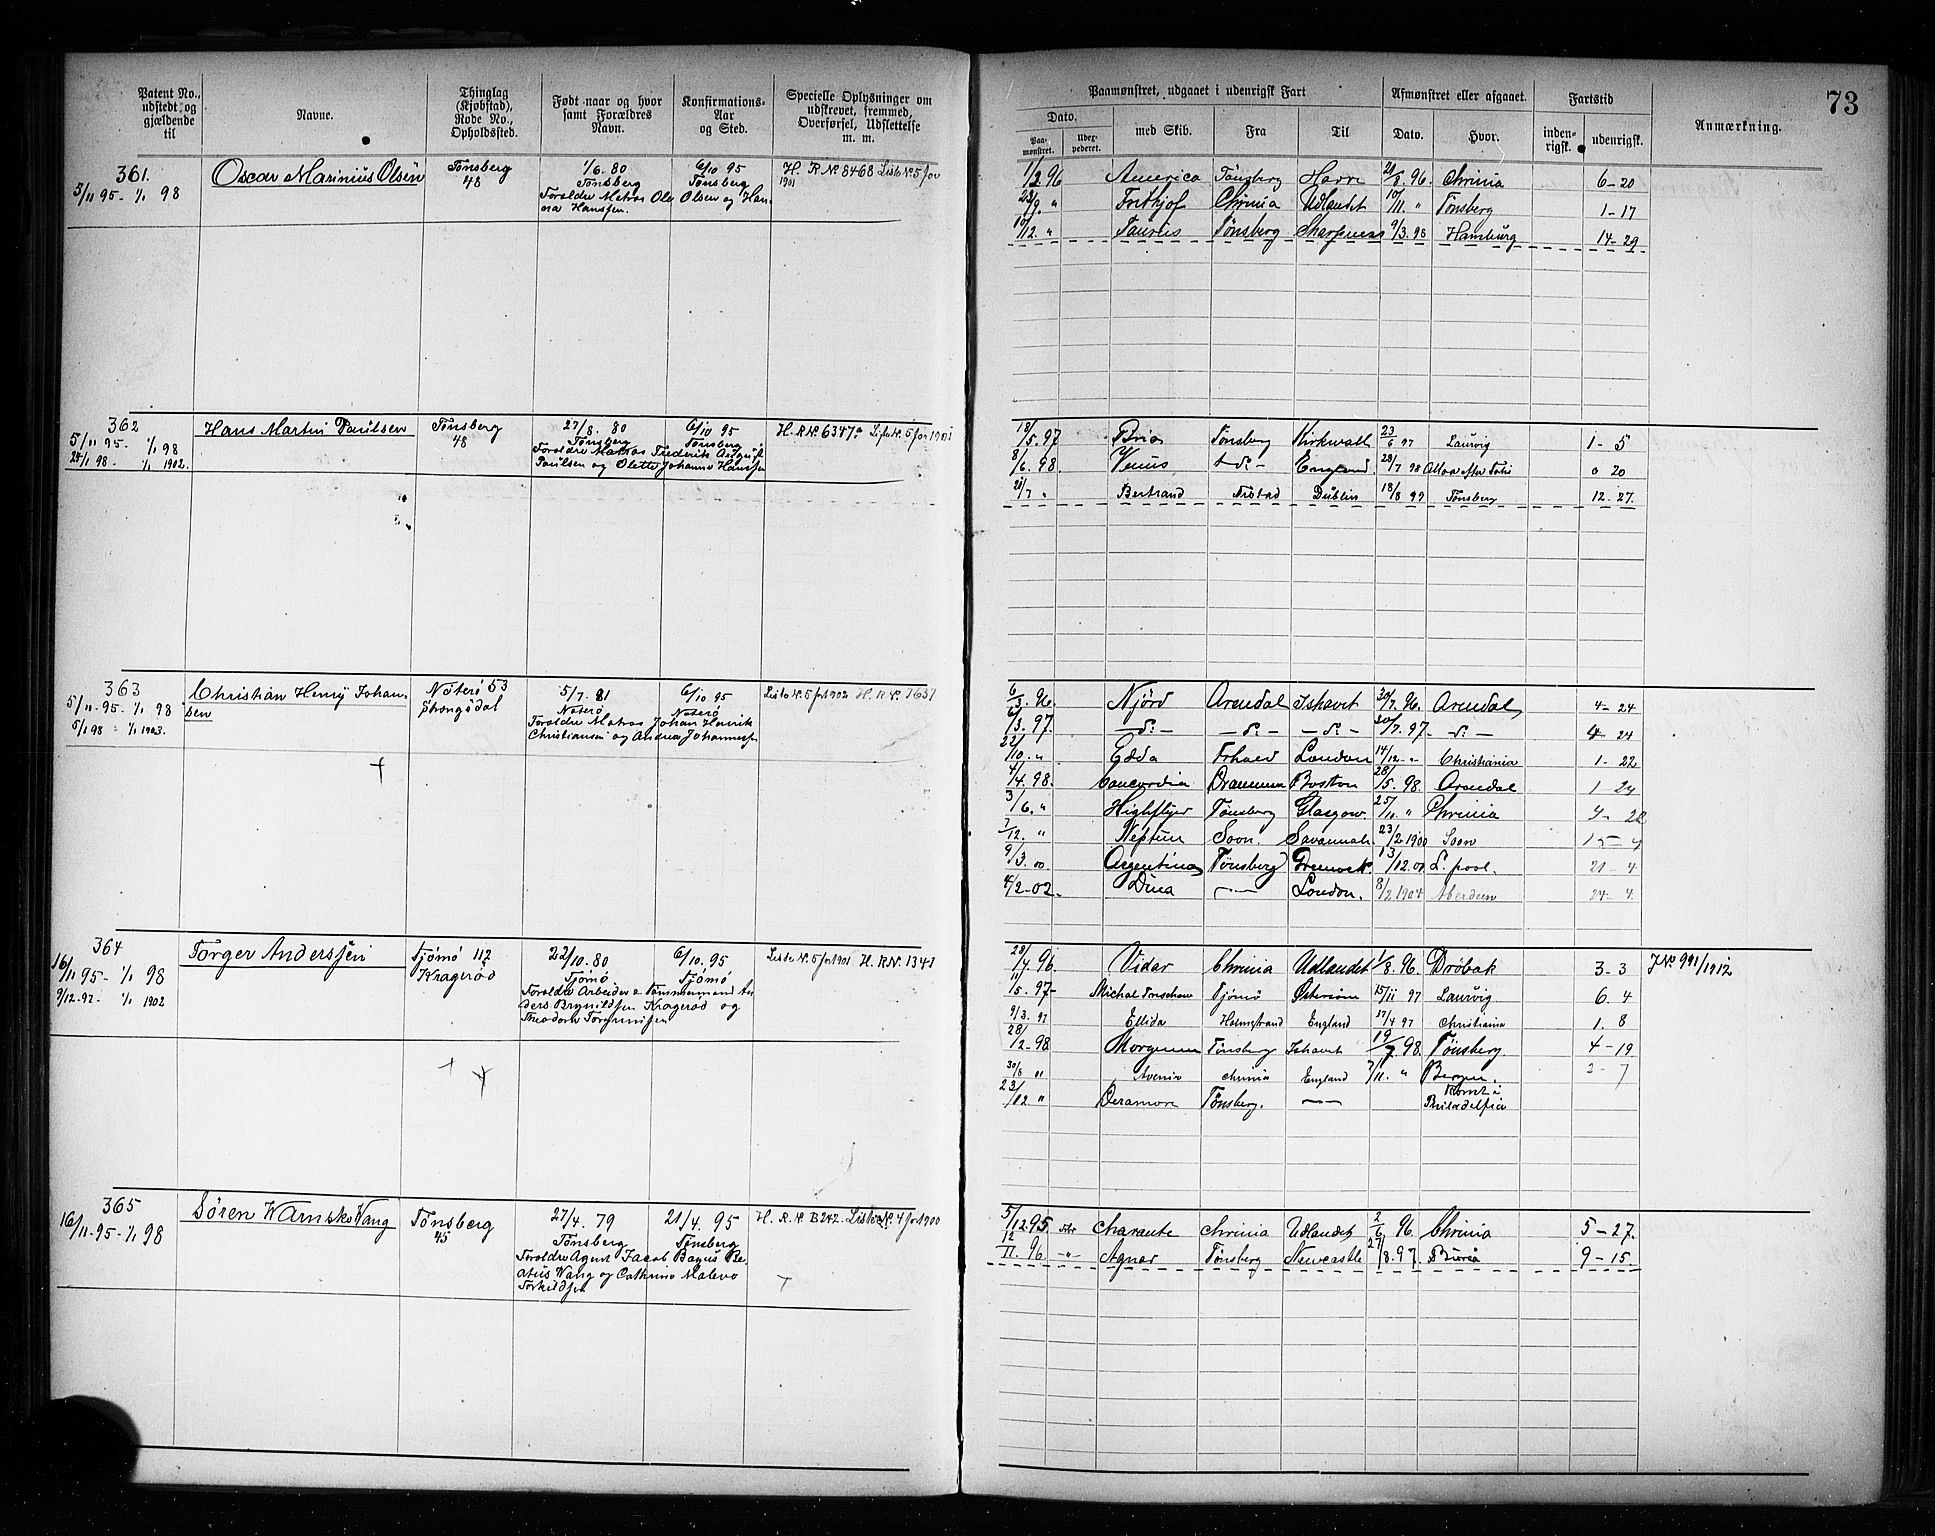 Patent No., udstedt og gjældende til
Navne.
Thinglag (Kjøbstad), Rode No., Opholdssted.
Født naar og hvor samt Forældres Navn.
Konfirmations-Aar og Sted.
Specielle Oplysninger om udskrevet, fremmed, Overførsel, Udslettelse m. m.
Paamønstret, udgaaet i udenrigsk Fart
Afmønstret eller afgaaet.
Fartstid
Anmærkning.
73
Dato.
Paa-mønstret.
med Skib.
Fra
Til
Dato.
Hvor.
inden-rigsk.
udenrigsk.
361.
5/11 95 - 1/1 98
Oscar Marinius Olsen
Tønsberg
48
1/6. 80
Tønsberg
Forældre Matros Ole Olsen og Hanna Hanssen.
6/10 95
Tønsberg
H. R No 8468 Liste No 5 for 1901
1/2 96 America Tønsberg Havre 21/8. 96. Chrinia 6-20
23/9. " Frithjof Chrinia Udlandet 10/11. " Tønsberg 1-17
10/12. " Taurus Tønsberg Sharpness 9/3. 98 Hamburg 14-29
362
5/11 95. 1/1 98
24/1 98 - 1/1 1902.
Hans Martin Paulsen
Tønsberg
48
27/8. 80
Tønsberg
Forældre Matros Frederik August
Paulsen og Olette Johanne Hanssen
6/10 95
Tønsberg
H. R No 6347a Liste No 5 for 1901
18/5. 97 Brio Tønsberg Kirkwall 23/6 97 Laurvig 1-5
8/6. 98 Venus -d:- England. 28/7 98 0 20
28/7 " Bertrand Dublin 18/8 99 Tønsberg 12-27.
363
5/11-95- 1/1 98
5/1 98 - 1/1 1903.
Christian Henry Johansen
Nøterø 53
5/7. 81
Nøterø
Forældre Matros Johan Henrik
Christiansen og Andrea Johannesen
6/10 95
Nøterø
Liste No. 5 for 1902 H. R No. 7637
6/3. 96. Njörd Arendal Ishavet 30/7. 96. Arendal 4-24
6/3. 97. -d:- -d:- -d:- 30/7. 97. -d:- 4 24
22/10. " Edda London 14/12 - " Christiania 1-22
4/4. 98. Concordia Drammen Boston 28/5. 98 Arendal 1 24
3/6. " Highflyer Tønsberg Glasgow 25/11 " Chrinia 4-22
7/12. " Neptun Soon. Savannah 23/2 1900 Soon 15-4
9/3. 00 Argentina Tønsberg Greenock 13/12. 01 L. pool. 21-4
4/2-02- Dina London. 8/2 1904 Aberdeen 24-4.
364
16/11 95- 1/1 98
9/12-97- 1/1 1902
Torger Anderssen
Tjømø 112
Kragerød
22/10. 80
Tjømø
Forældre Arbeider o Tømmermand Anders Brynildsen Kragerød og
6/10. 95
Tjømø
Liste No. 5 for 1901 H. R No. 1341
28/7. 96. Vidar Chrinia Udlandet 1/8. 96. Drøbak 3-3 J No 991/1912
11/5. 97- Tjømø Østersøen 15/11 97 Laurvig 6. 4
9/3. 97 Ellida Holmestrand England 17/4 97 Christiania 1. 8
28/2-98 Morgenen Tønsberg Ishavet 19/7. 98. Tønsberg. 4-19
30/8 " chrinia England 7/11. " Bergen. 2-7
23/12 " Deramore Tønsberg. Rømt i Philadelfia
365
16/11-95-1/1 98
Søren Wamsko Wang
Tønsberg
45
27/4. 79
Tønsberg
Forældre Agent Jacob Bagus Beatus Wang og Cathrine Malevo
Torkildsen
21/4. 95
Tønsberg
H. R. No. B242. Liste No. 4 for 1900
5/12 95. Charante chrinia Udlandet 2/6. 96. Chrinia 5-27.
12/11. 96 -"- Agnar Tønsberg Newcastle 27/8. 97. 9-15.